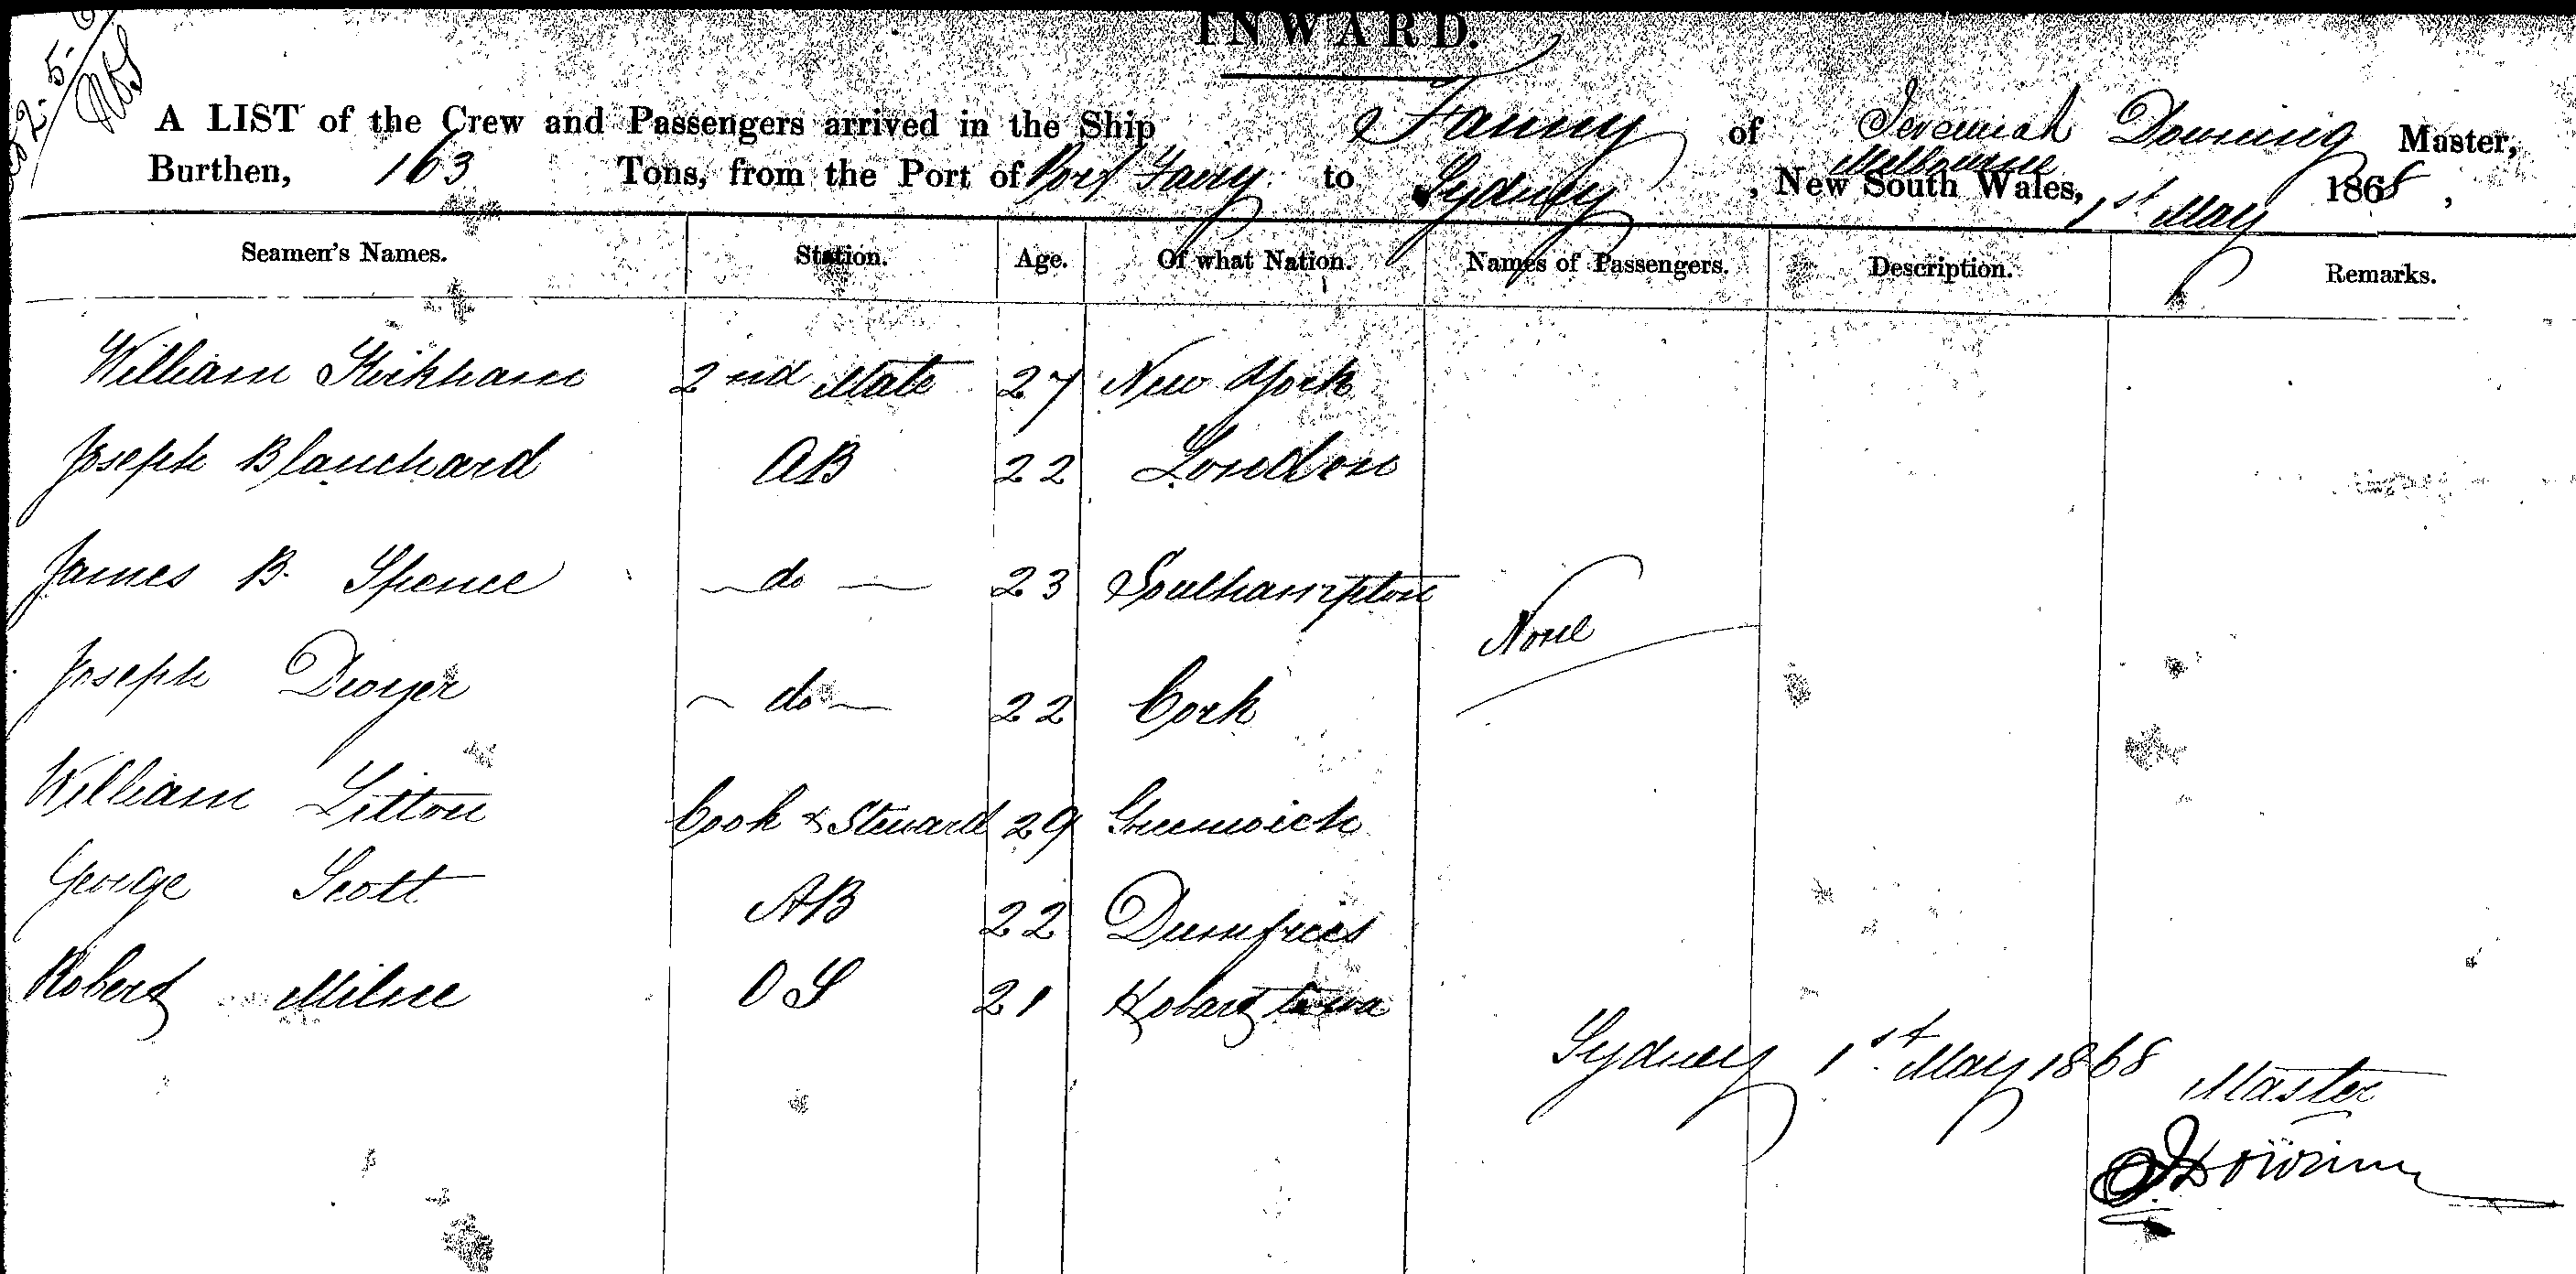 INWARD.
A LIST of the Crew and Passengers arrived in the Ship Fanny of Jeremiah Downing Master,
Melbourne
Burthen, 163 Tons, from the Port of Port Fairy to Sydney, New South Wales, 1st May 1868,
Seamen's Names. Station. Age. Of what Nation. Names of Passengers. Description. Remarks.
William Kirkham 2nd Mate 27 New York
Joseph Blanchard AB 22 London
James B. Spence do 23 Southampton
None
Joseph Dwyer do 22 Cork
William Litton Cook & Steward 29 Greenwich
George Scott AB 22 Dumfries
Robert Milne OS 21 Hobart Town
Sydney 1st May 1868 Master
J Downing